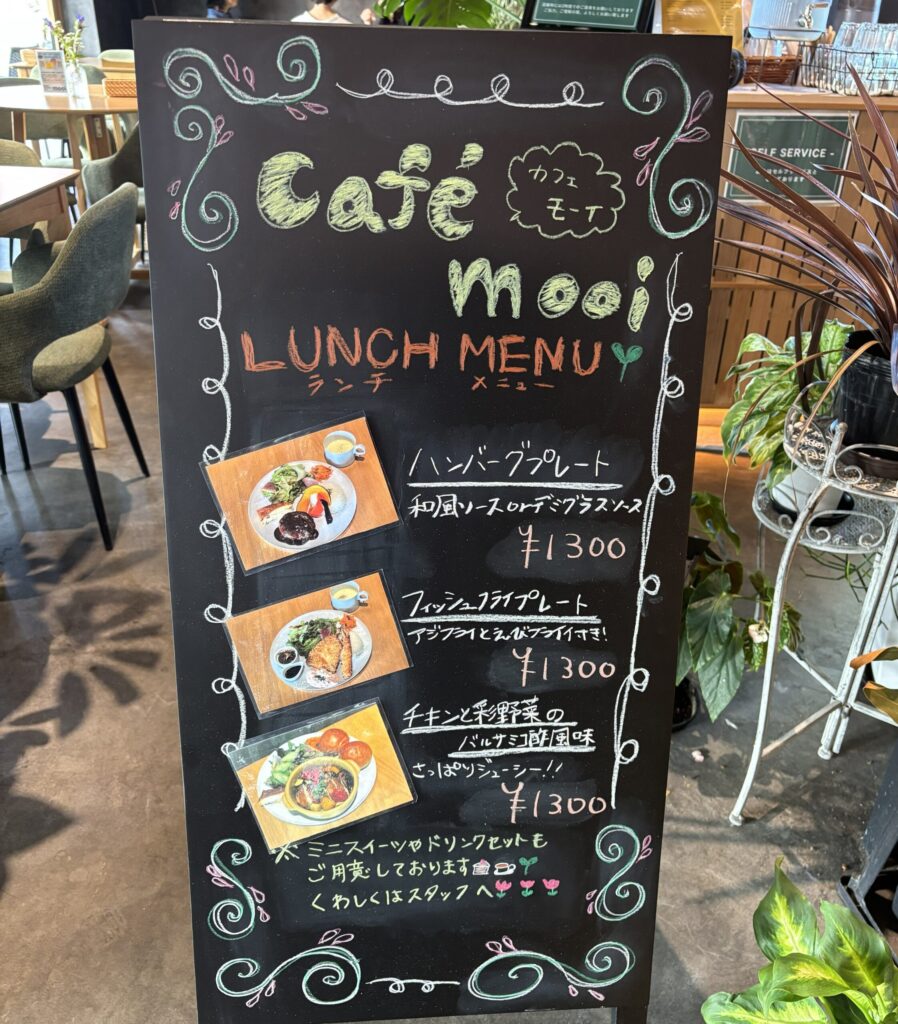 Café
カフェ
モーイ
mooi
LUNCH MENU
ランチ メニュー
ハンバーグプレート
和風ソースorデミグラスソース
¥1300
フィッシュフライプレート
アジフライとえびフライ付き!
¥1300
チキンと彩野菜の
バルサミコ酢風味
さっぱりジューシー!!
¥1300
※ ミニスイーツやドリンクセットも
ご用意しております
くわしくはスタッフへ
SELF SERVICE -